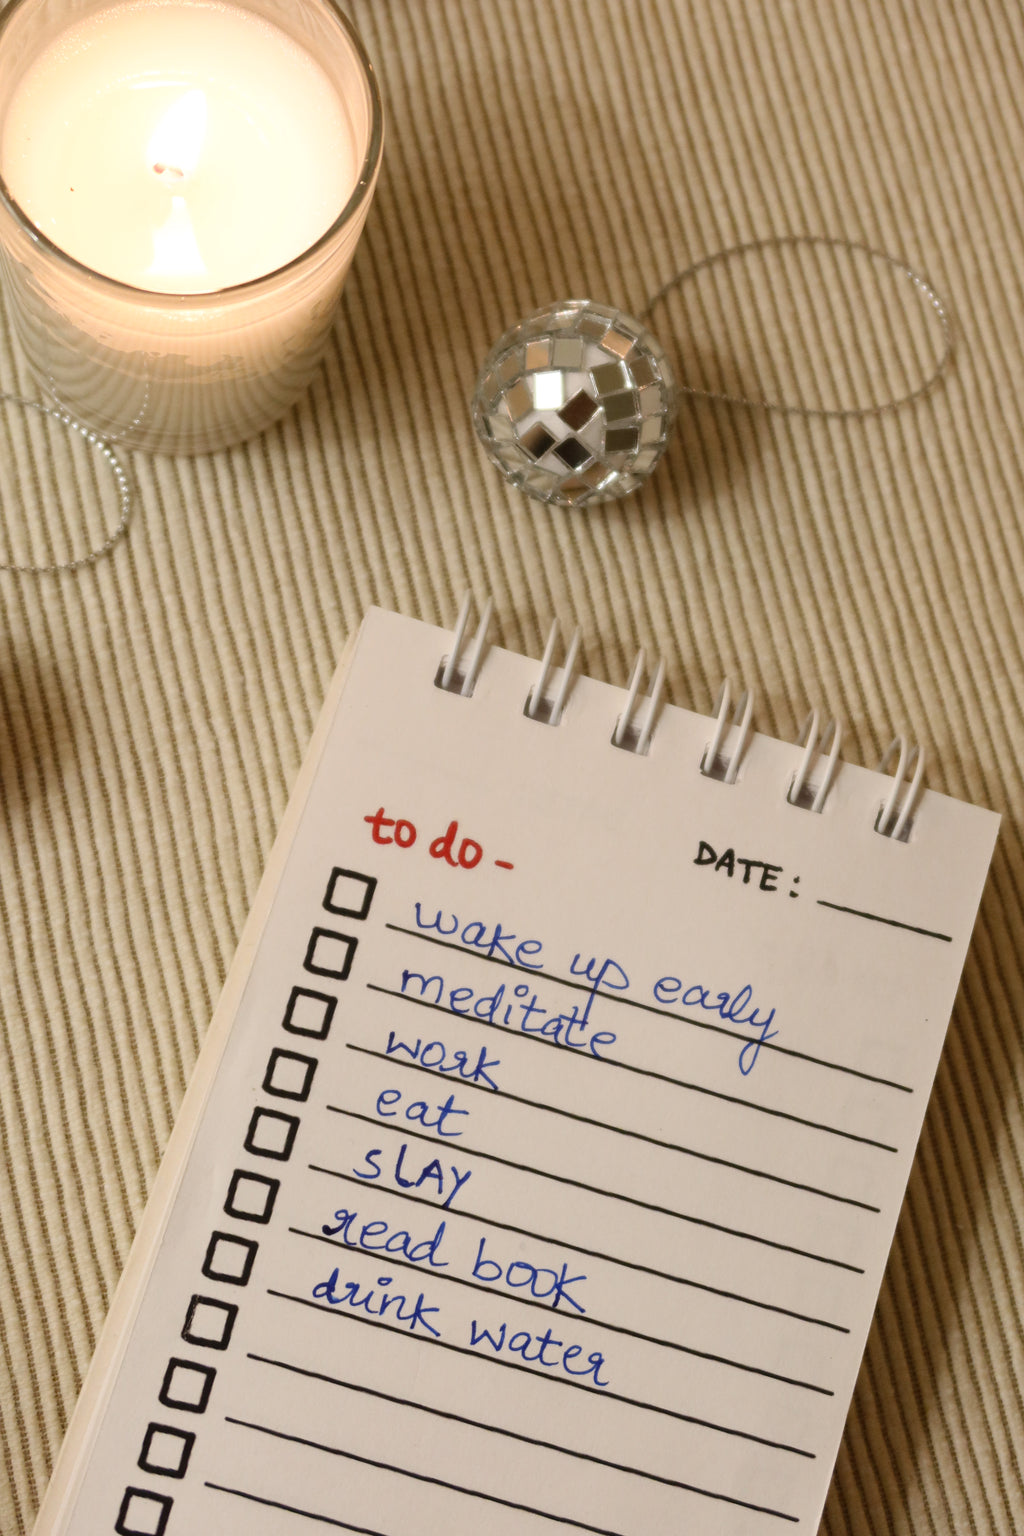 to do -
DATE:
wake up early
meditate
work
eat
SLAY
read book
drink water